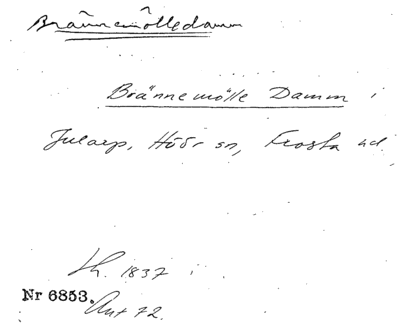 Brännemölledamm
Brännemölle Damm i
Jularp, Höör sn, Frosta hd.
Lh. 1837
Nr 6853.
Ant 72.